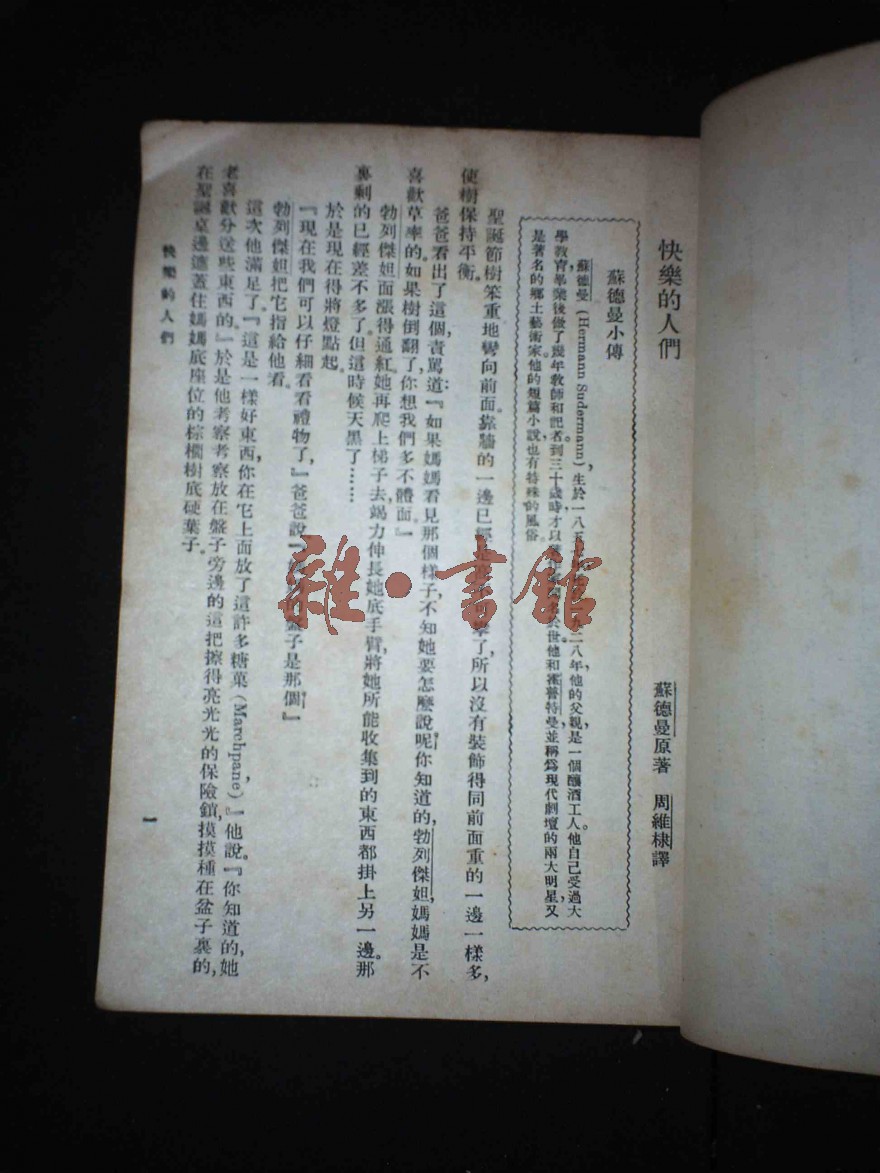 快樂的人們
蘇德曼原著 周維棣譯
蘇德曼小傳
蘇德曼(Hermann Sudermann),生於一八五 二八年,他的父親,是一個釀酒工人。他自己受過大
學教育,畢業後做了幾年教師和記者。到三十歲時才以 於世。他和霍普特曼並稱爲現代劇壇的兩大明星,又
是著名的鄉土藝術家,他的短篇小說也有特殊的風俗。
聖誕節樹笨重地彎向前面。靠牆的一邊已經 了,所以沒有裝飾得同前面重的一邊一樣多,
使樹保持平衡。
爸爸看出了這個,責罵道:『如果媽媽看見那個樣子,不知她要怎麼說呢?你知道的,勃列傑妲,媽媽是不
喜歡草率的。如果樹倒翻了,你想我們多不體面。』
勃列傑妲面漲得通紅。她再爬上梯子去,竭力伸長她底手臂,將她所能收集到的東西都掛上另一邊。那
裏剩的已經差不多了。但這時候天黑了……
於是現在得將燈點起。
『現在我們可以仔細看看禮物了,』爸爸說。『 的盤子是那個?』
勃列傑妲把它指給他看。
這次他滿足了。『這是一樣好東西,你在它上面放了這許多糖菓(Marchpane),』他說。『你知道的,她
老喜歡分送些東西的。』於是他考察考察放在盤子旁邊的這把擦得亮光光的保險鎖,摸摸種在盆子裏的,
在聖誕桌邊遮蓋住媽媽底座位的棕櫚樹底硬葉子。
快樂的人們
一
雜·書館